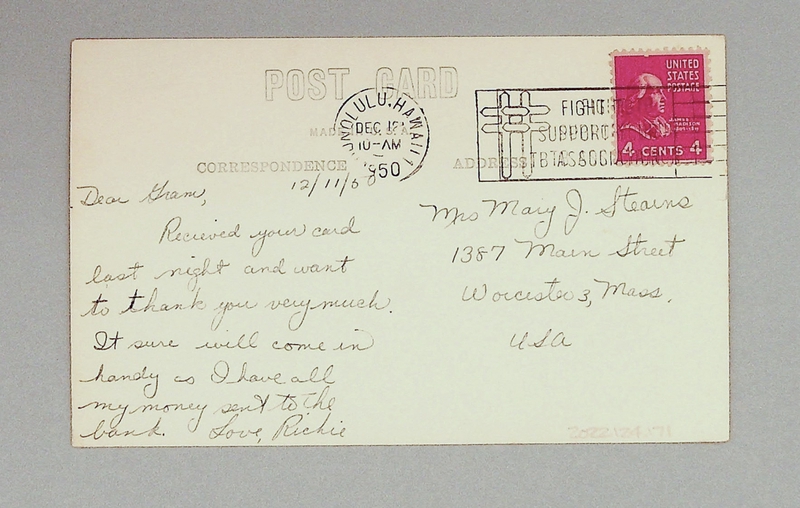 POST CARD
UNITED
STATES
POSTAGE
JAMES
MADISON
4 CENTS 4
HONOLULU. HAWAII
DEC 12
10-AM
1950
FIGHT TB
SUPPORT
TB ASSOCIATION
MADE IN U.S.A.
CORRESPONDENCE
ADDRESS
12/11/50
Dear Gram,
Recieved your card
last night and want
to thank you very much.
It sure will come in
handy as I have all
my money sent to the
bank. Love, Richie
Mrs Mary J. Stearns
1387 Main Street
Worcester 3, Mass.
USA